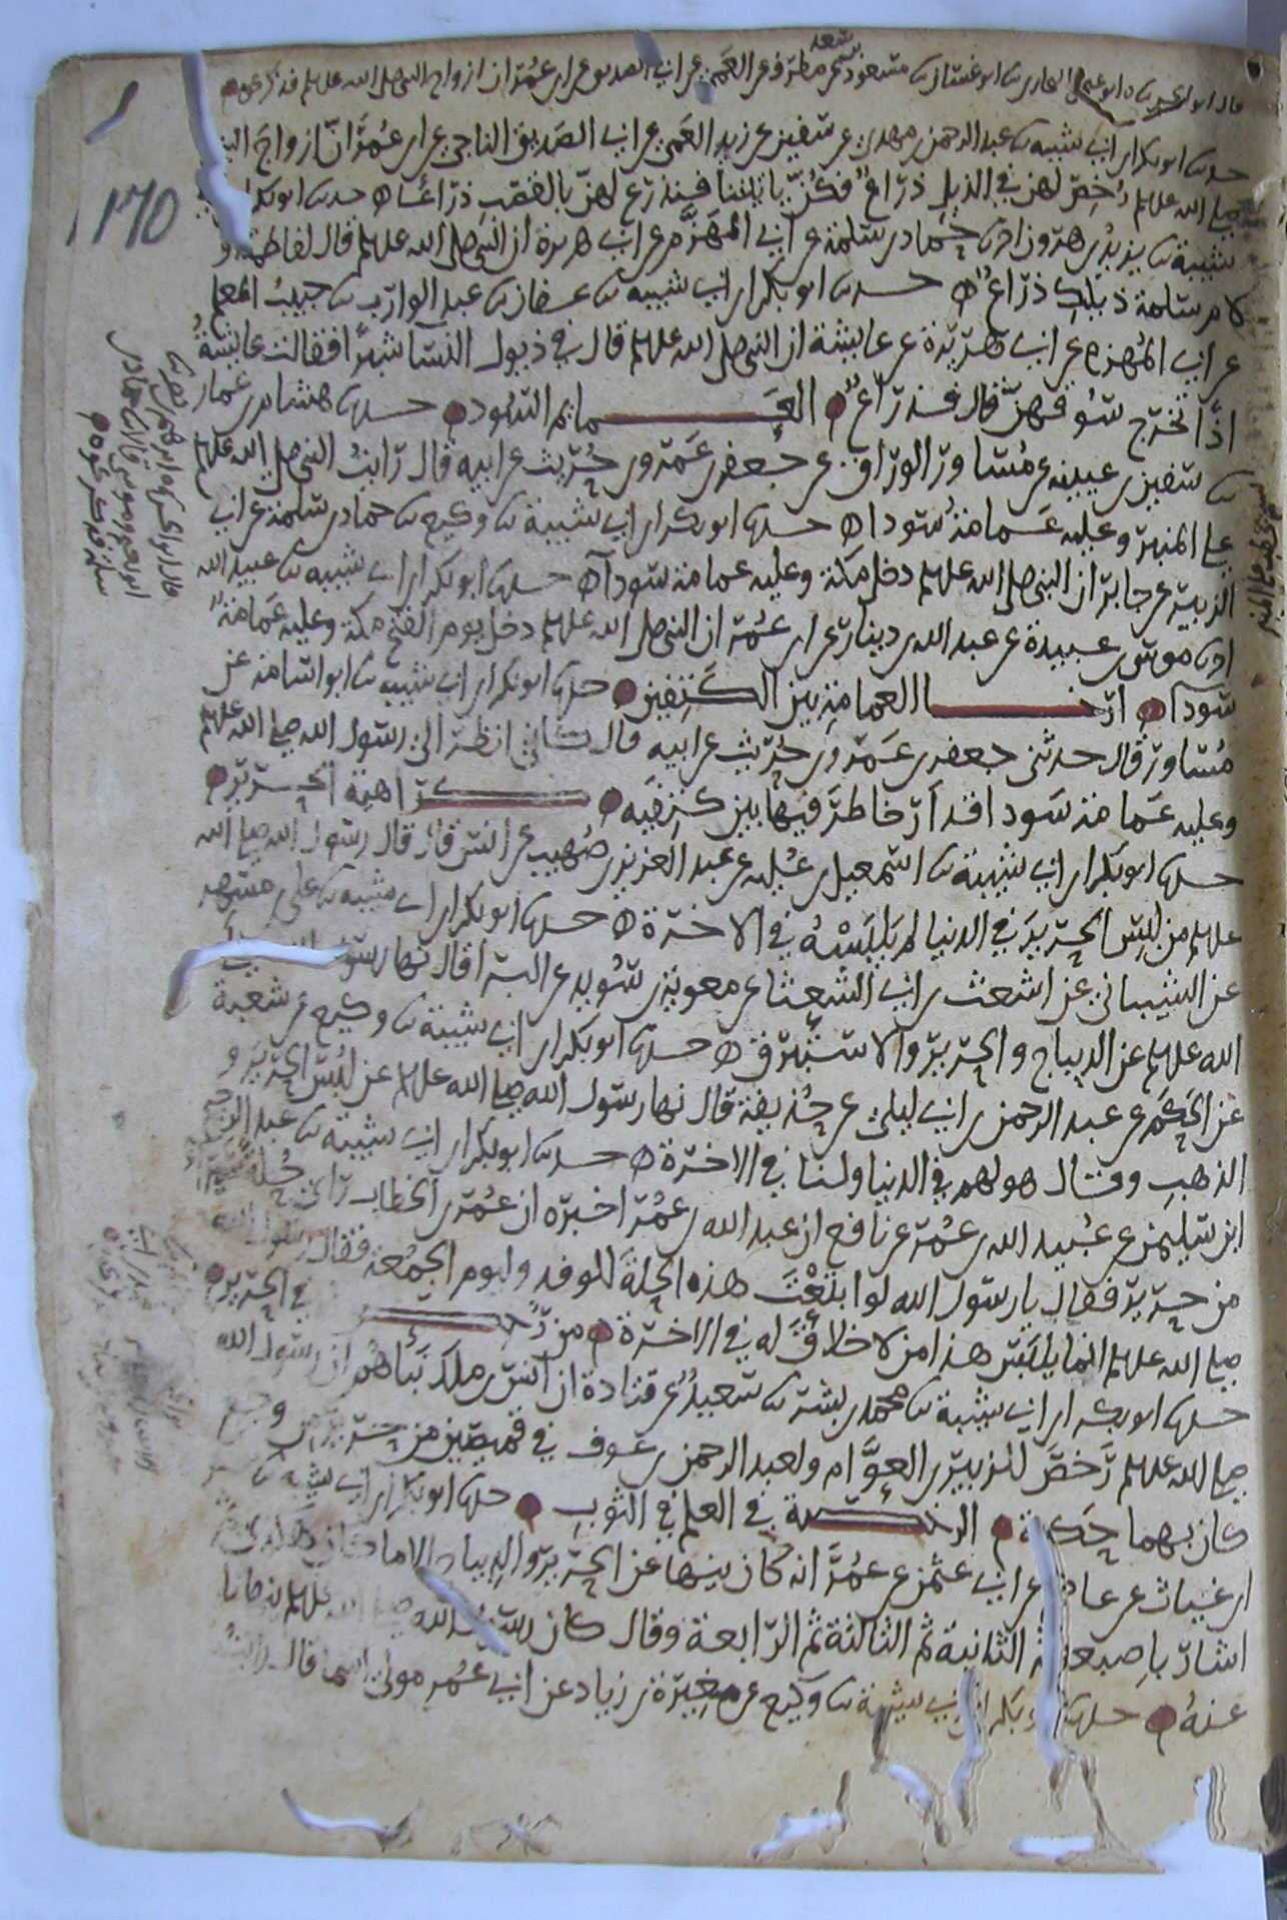 حدثنا ابو بكر ابن ابي شيبة ثنا عبد الرحمن بن مهدي عن سفين عن زيد العمي عن ابي الصديق الناجي عن ابن عمر ان ازواج النبي
صلى الله عليه وسلم رخص لهن في الذيل ذراع فكن ياتيننا فنذرع لهن بالقصب ذراعا حدثنا ابو بكر
شيبة ثنا يزيد بن هرون انا حماد بن سلمة عن ابي المهزم عن ابي هريرة ان النبي صلى الله عليه وسلم قال لفاطمة او
لام سلمة ذيلك ذراع حدثنا ابو بكر ابن ابي شيبة ثنا عفان ثنا عبد الوارث ثنا حبيب المعلم
عن ابي المهزم عن ابي هريرة عن عايشة ان النبي صلى الله عليه وسلم قال في ذيول النسا شبرا فقالت عايشة
اذا تخرج سوقهن قال فذراع العمايم السود حدثنا هشام بن عمار
ثنا سفين بن عيينه عن مساور الوراق عن جعفر بن عمرو بن حريث عن ابيه قال رايت النبي صلى الله عليه وسلم
على المنبر وعليه عمامة سودا حدثنا ابو بكر ابن ابي شيبة ثنا وكيع ثنا حماد بن سلمة عن ابي
الزبير عن جابر ان النبي صلى الله عليه وسلم دخل مكة وعليه عمامة سودا حدثنا ابو بكر ابن ابي شيبه ثنا عبيد الله
انا موسى بن عبيدة عن عبد الله بن دينار عن ابن عمر ان النبي صلى الله عليه وسلم دخل يوم الفتح مكة وعليه عمامة
سودا ارخا العمامة بين الكتفين حدثنا ابو بكر ابن ابي شيبه ثنا ابو اسامة عن
مساور قال حدثني جعفر بن عمرو بن حريث عن ابيه قال كاني انظر الى رسول الله صلى الله عليه وسلم
وعليه عمامة سودا قد ارخا طرفيها بين كتفيه كراهية الحرير
حدثنا ابو بكر ابن ابي شيبة ثنا اسمعيل بن علية عن عبد العزيز بن صهيب عن انس قال قال رسول الله صلى الله
عليه وسلم من لبس الحرير في الدنيا لم يلبسه في الاخرة حدثنا ابو بكر ابن ابي شيبة ثنا علي بن مسهر
عن الشيباني عن اشعث بن ابي الشعثا عن معوية بن سويد عن البرا قال نها رسول
الله عليه وسلم عن الديباج والحرير والاستبرق حدثنا ابو بكر ابن ابي شيبة ثنا وكيع عن شعبة
عن الحكم عن عبد الرحمن بن ابي ليلى عن حذيفة قال نها رسول الله صلى الله عليه وسلم عن لبس الحرير و
الذهب وقال هو لهم في الدنيا ولنا في الاخرة حدثنا ابو بكر ابن ابي شيبة ثنا عبد الرحيم
ابن سليمن عن عبيد الله بن عمر عن نافع ان عبد الله بن عمر اخبره ان عمر بن الخطاب راى حلة سيرا
من حرير فقال يا رسول الله لو ابتعت هذه الحلة للوفد وليوم الجمعة فقال رسول الله
صلى الله عليه وسلم انما يلبس هذا من لا خلاق له في الاخرة من رخص في الحرير
حدثنا ابو بكر ابن ابي شيبة ثنا محمد بن بشر ثنا سعيد عن قتادة ان انس بن ملك نباهم ان رسول الله
صلى الله عليه وسلم رخص للزبير بن العوام ولعبد الرحمن بن عوف في قميصين من حرير من وجع
كان بهما حكة الرخصة في العلم في الثوب حدثنا ابو بكر ابن ابي شيبه ثنا
ابن غياث عن عاصم عن ابي عثمن عن عمر انه كان ينها عن الحرير والديباج الا ما كان هكذا
اشار باصبعه ثم الثانية ثم الثالثة ثم الرابعة وقال كان رسول الله صلى الله عليه وسلم ينهانا
عنه حدثنا ابو بكر ابن ابي شيبة ثنا وكيع عن مغيرة بن زياد عن ابي عمر مولى اسما قال رايت
١٦٥